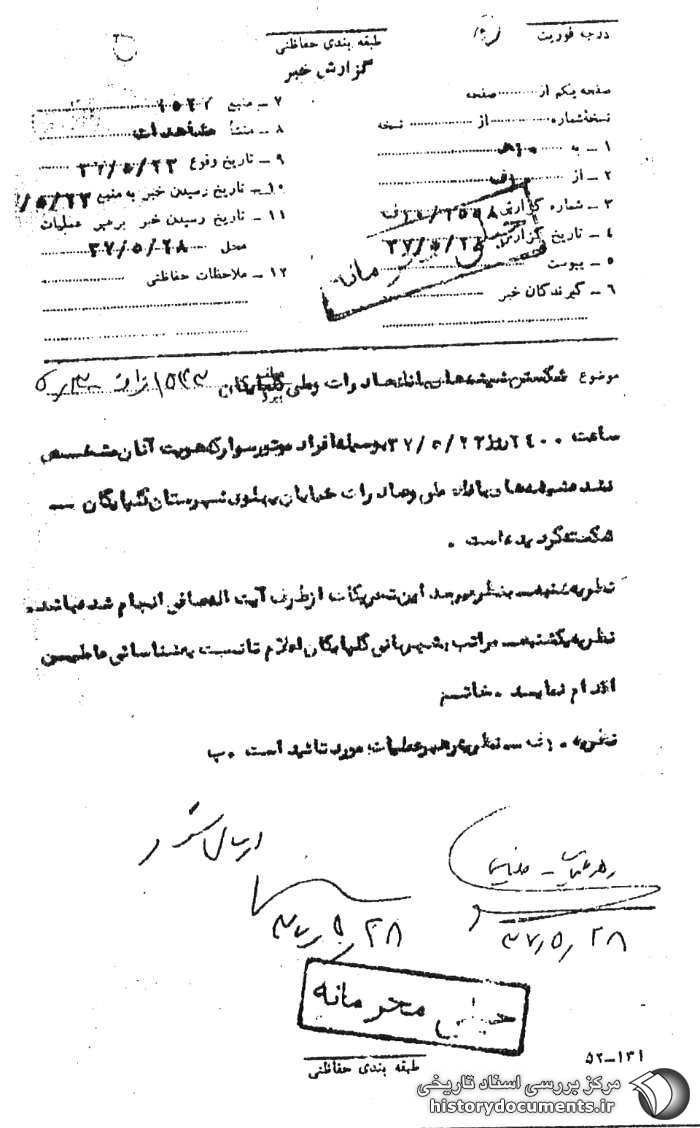 درجه فوریت
طبقه بندی حفاظتی
گزارش خبر
صفحه یکم از ........ صفحه
نسخه شماره ........ از ........ نسخه
۱ – به
۲ – از
۳ – شماره گزارش
۴ – تاریخ گزارش
۵ – پیوست
۶ – گیرندگان خبر
۷ – منبع
۸ – منشأ مشاهدات
۹ – تاریخ وقوع ۳۷/۵/۲۳
۱۰ – تاریخ رسیدن خبر به منبع
۱۱ – تاریخ رسیدن خبر برهبر عملیات
محل ۳۷/۵/۲۸
۱۲ – ملاحظات حفاظتی
خیلی محرمانه
موضوع شکستن شیشه های بانکهای صادرات و ملی گلپایگان
ساعت ۲۴۰۰ روز ۳۷/۵/۲۳ بوسیله افراد موتور سوار که هویت آنان مشخص
نشده شیشه های بانک ملی و صادرات خیابان پهلوی شهرستان گلپایگان –
شکسته گردیده است .
نظریه شنبه – بنظر میرسد این تحریکات از طرف آیت اله صافی انجام شده باشد .
نظریه یکشنبه – مراتب بشهربانی گلپایگان اعلام تا نسبت به شناسائی عاملین
اقدام نمایند .
نظریه – نظریه رهبر عملیات مورد تائید است . ب
رهبر عملیات –
۳۷/۵/۲۸
ارسال شود
۳۷/۵/۲۸
خیلی محرمانه
طبقه بندی حفاظتی
۵۲–۱۳۱
مرکز بررسی اسناد تاریخی
historydocuments.ir